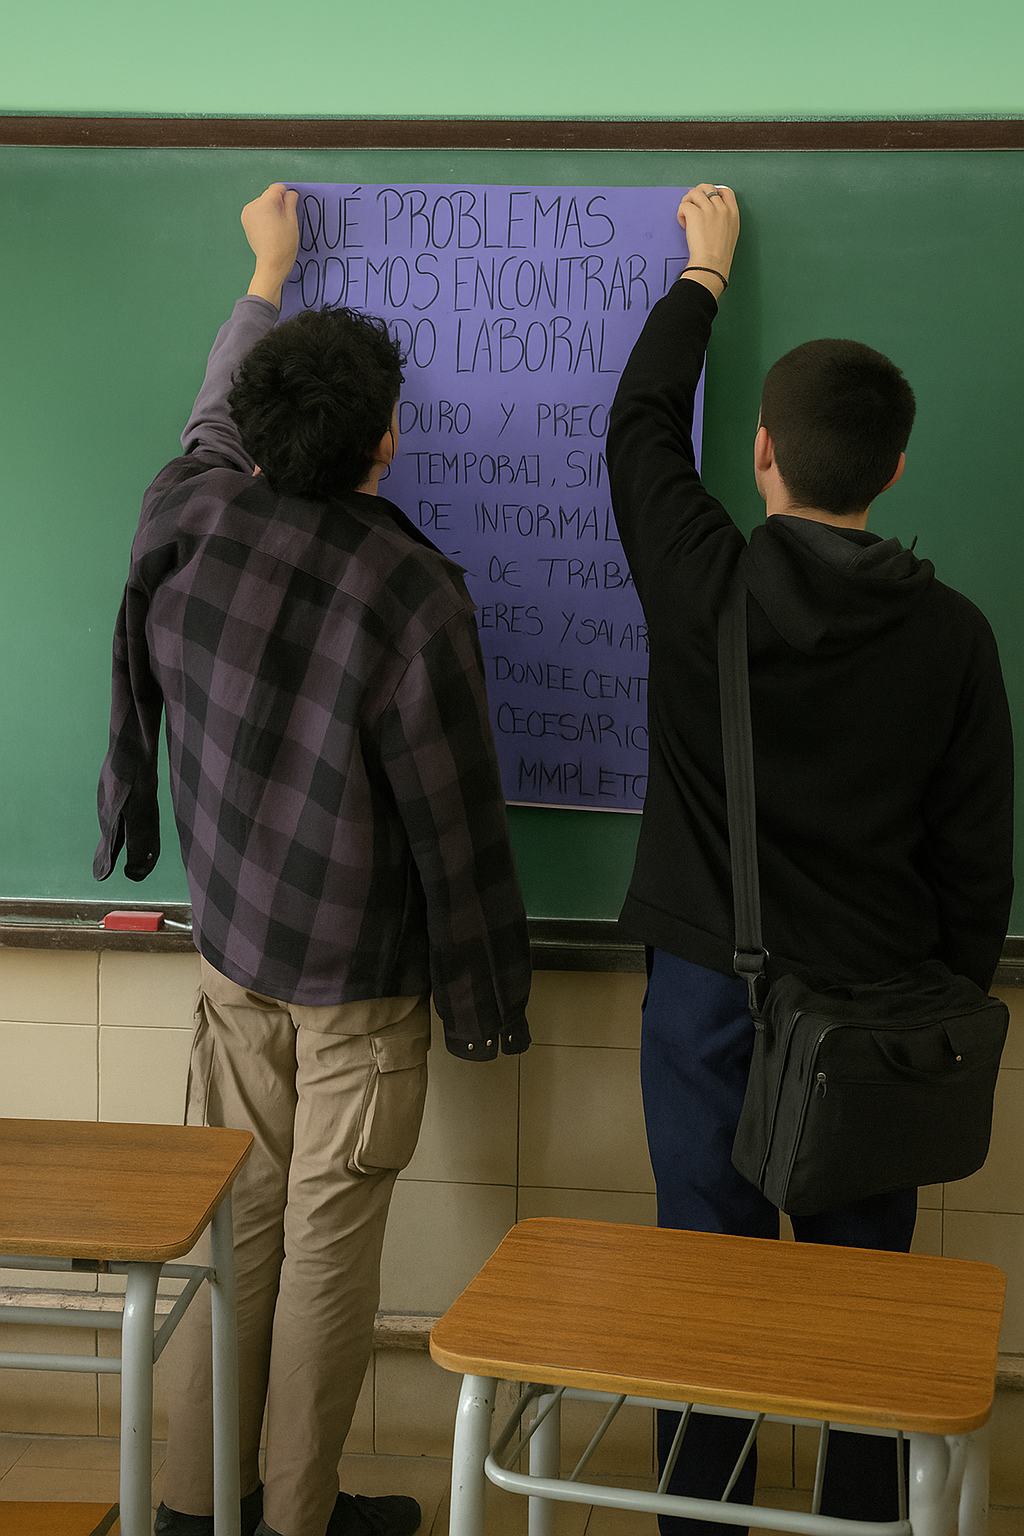 QUÉ PROBLEMAS
PODEMOS ENCONTRAR E
DO LABORAL
DURO Y PRECO
TEMPORAL, SIN
DE INFORMAL
DE TRABA
ERES Y SALAR
DONEE CENT
CECESARIO
MMPLETO